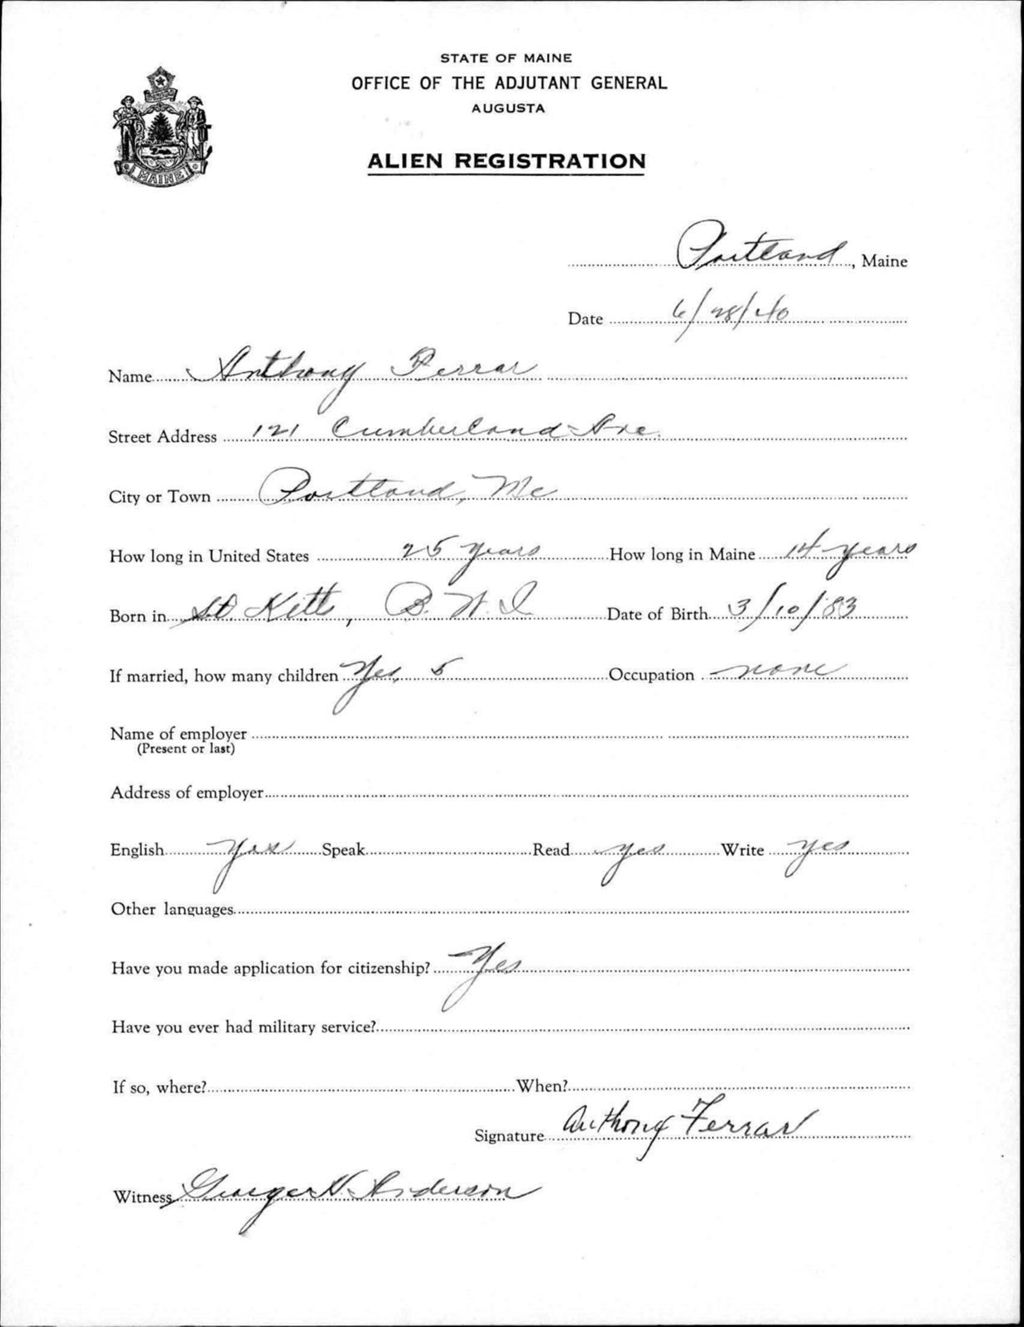 STATE OF MAINE
OFFICE OF THE ADJUTANT GENERAL
AUGUSTA
MAINE
ALIEN REGISTRATION
Portland, Maine
Date 6/28/40
Name Anthony Ferrar
Street Address 121 Cumberland Ave.
City or Town Portland, Me
How long in United States 25 years How long in Maine 14 years
Born in St. Kitts, B. W. I. Date of Birth 3/10/83
If married, how many children Yes, 5 Occupation none
Name of employer
(Present or last)
Address of employer
English Yes Speak Read yes Write yes
Other languages
Have you made application for citizenship? Yes
Have you ever had military service?
If so, where? When?
Signature Anthony Ferrar
Witness George N. Anderson